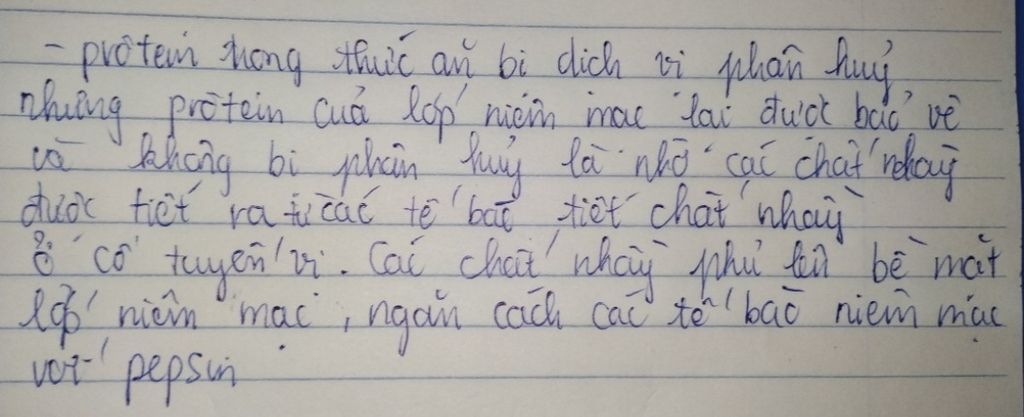 - prôtein trong thức ăn bị dịch vị phân huỷ
nhưng prôtein của lớp niêm mạc lại được bảo vệ
và không bị phân huỷ là nhờ các chất nhày
được tiết ra từ các tế bào tiết chất nhày
ở cổ tuyến vị. Các chất nhày phủ lên bề mặt
lớp niêm mạc, ngăn cách các tế bào niêm mạc
với pepsin